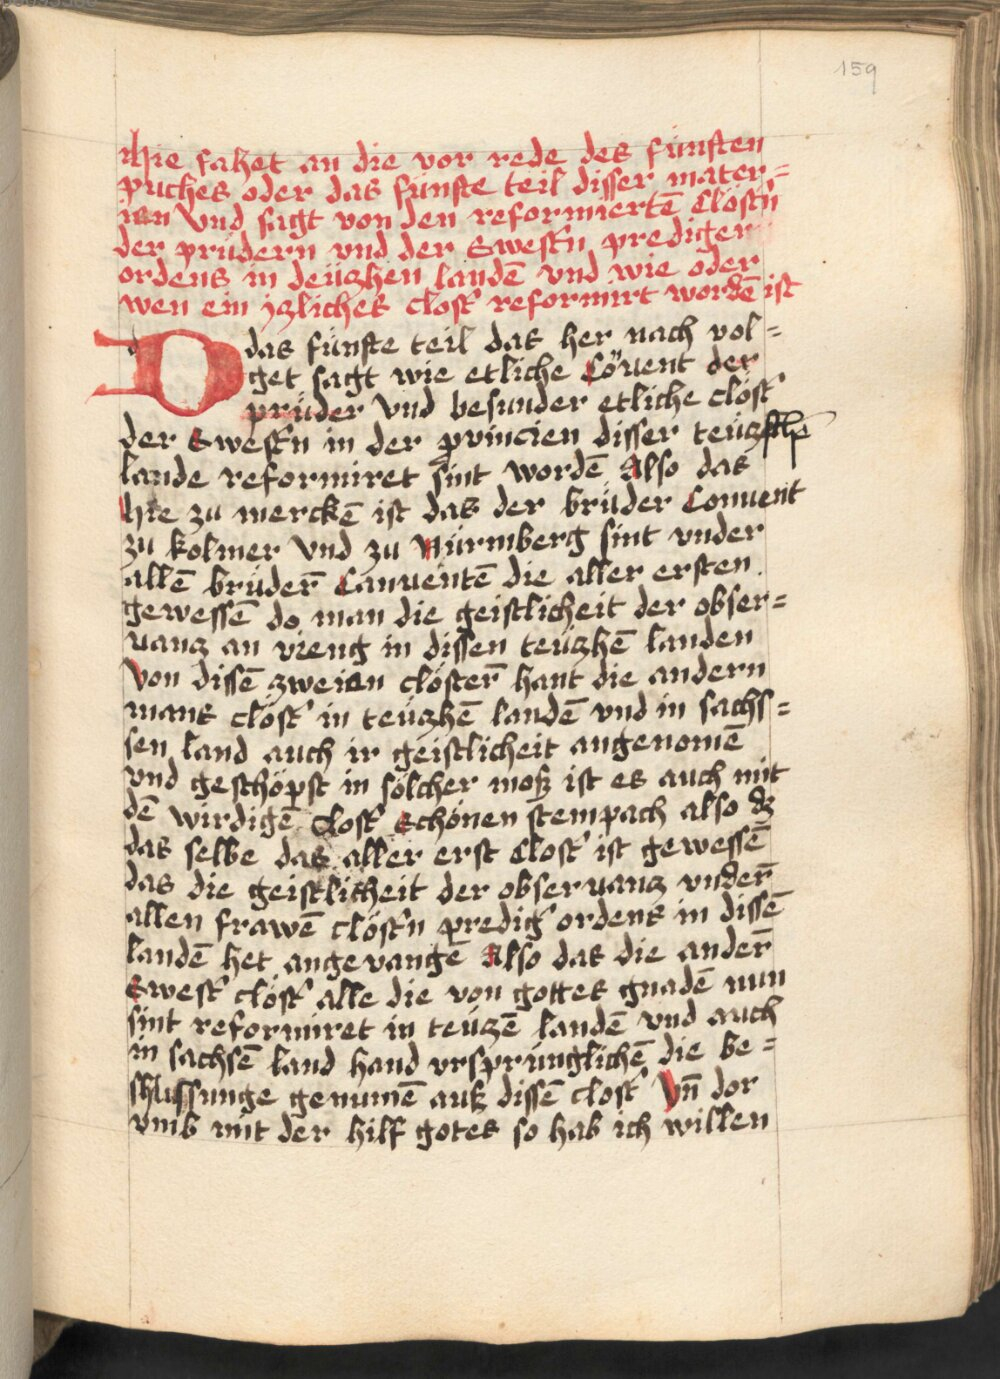 159
Hie fahet an die vor rede des funften
puches oder das funfte teil disser mater=
ien Vnd sagt von den reformiertē Clöst'n
der prüdern vnd der Swest'n prediger
ordens in deüczhen landē vnd wie oder
wen ein yzliches clost' reformirt wordē ist
das fünfte teil das her nach vol=
get sagt wie etliche Cöuent der
prüder vnd besunder etliche clöst'
der Swest'n in der prouincien disser teüczsch
lande reformiret sint wordē Also das
hie zu merckē ist das der brüder Conuent
zu kolmer vnd zu Nürmberg sint vnder
allē brüder̄ Canuentē die aller ersten
gewessē do man die geistlicheit der obser=
uancz an vieng in dissen teüczhē landen
Von dissē zweien clöster̄ hant die andern
mans clöst' in teüczhē landē vnd in sachs=
sen land auch ir geistlicheit angenomē
vnd geschöpft in sölcher moß ist es auch mit
dē wirdigē clost' Schönen stempach also dz
das selbe das aller erst Clost' ist gewessē
das die geistlicheit der obseruancz vnder̄
allen frawē clöst'n predig' ordens in dissē
landē het angevangē Also das die ander̄
Swest' clöst' alle die von gottes gnadē nun
sint reformiret in teüczē landē vnd auch
in sachsē land hand vrsprünglichē die be=
schlussunge genumē auß dissē clost' Vn̄ dor
vmb mit der hilf gotes so hab ich willen